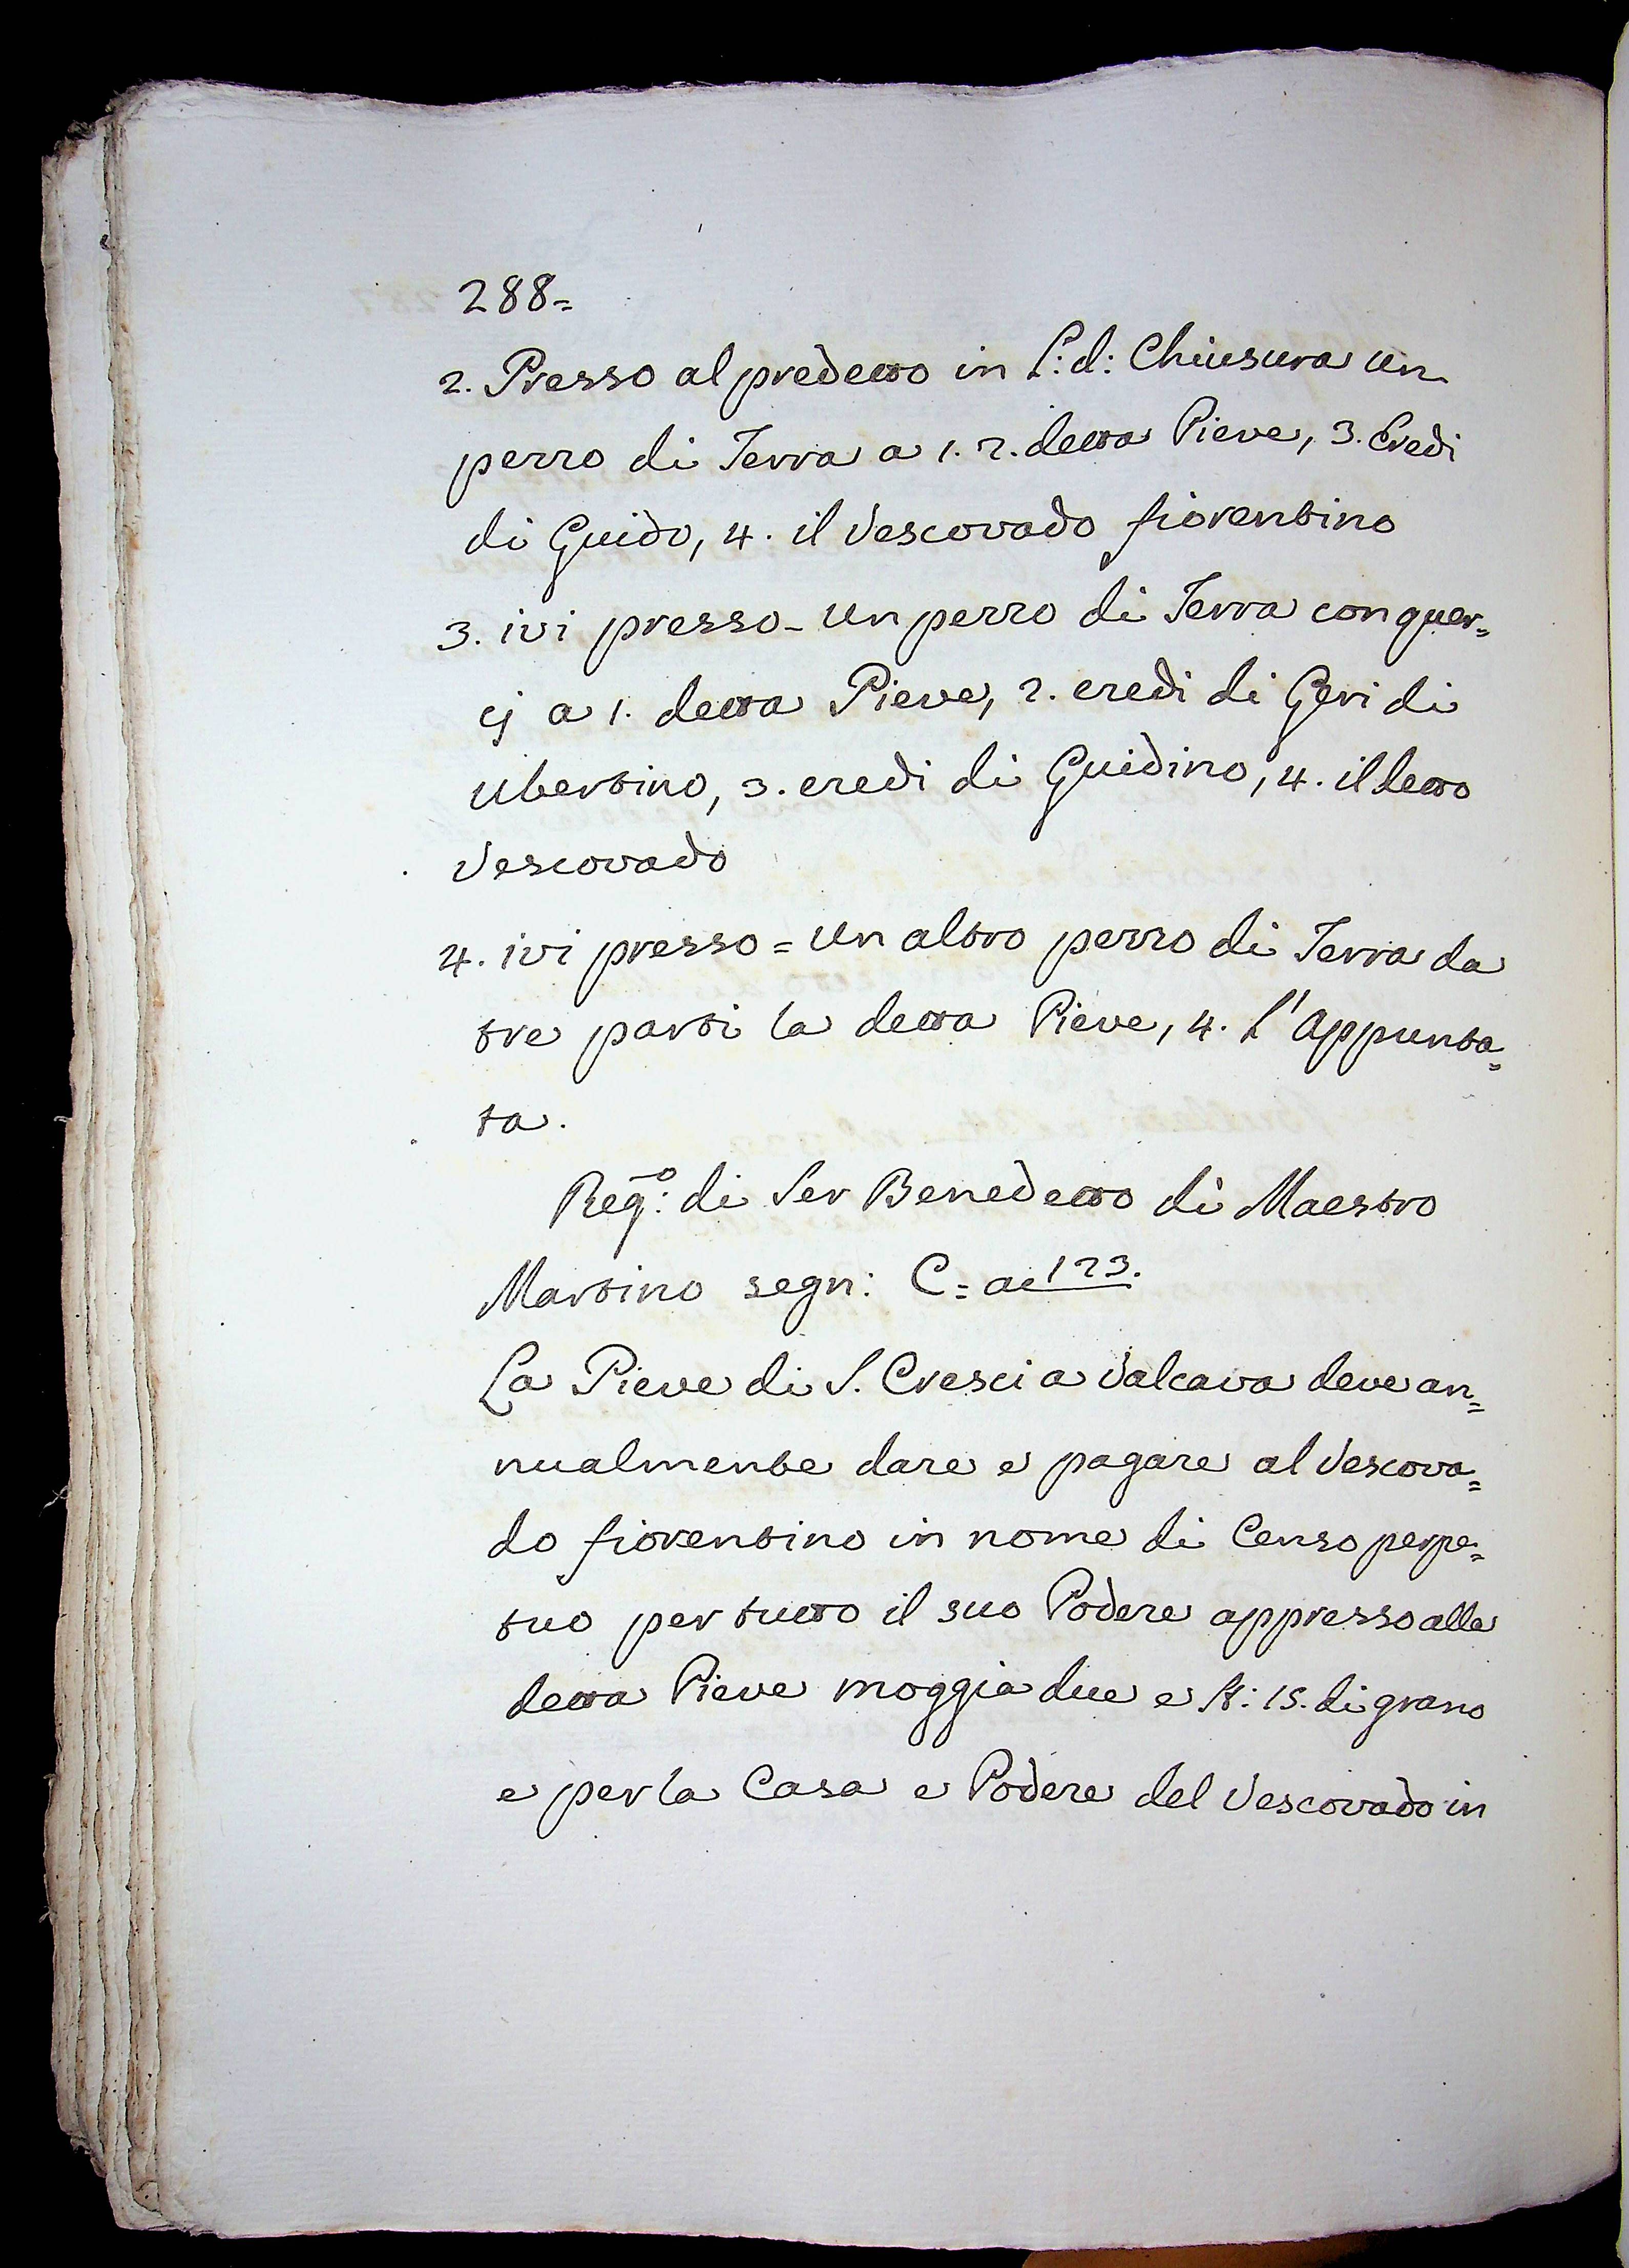 288=
2. Presso al predetto in L: d: Chiusura un
pezzo di Terra a 1. 2. detta Pieve, 3. Eredi
di Guido, 4. il Vescovado fiorentino
3. ivi presso - Un pezzo di Terra con quer=
cj a 1. detta Pieve, 2. eredi di Geri di
Ubertino, 3. eredi di Guidino, 4. il detto
Vescovado
4. ivi presso = Un altro pezzo di Terra da
tre parti la detta Pieve, 4. L'Appunta=
ta.
Reg:o di Ser Benedetto di Maestro
Martino segn: C = a 123.
La Pieve di S. Cresci a Valcava deve an=
nualmente dare e pagare al Vescova=
do fiorentino in nome di Censo perpe=
tuo per tutto il suo Podere appresso alla
detta Pieve moggia due e St: 15. di grano
e per la Casa e Podere del Vescovado in